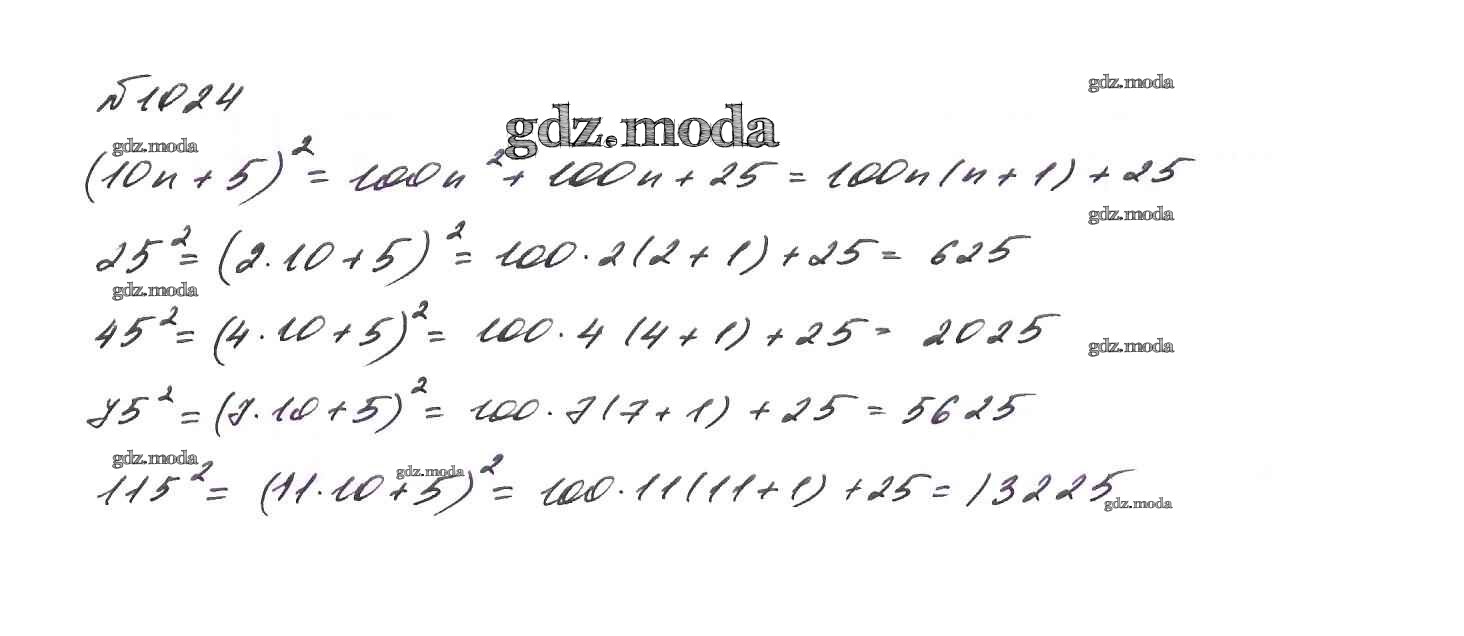 №1024
gdz.moda
gdz.moda
gdz.moda
(10n + 5)² = 100n² + 100n + 25 = 100n(n + 1) + 25
gdz.moda
25² = (2·10 + 5)² = 100·2(2 + 1) + 25 = 625
gdz.moda
45² = (4·10 + 5)² = 100·4(4 + 1) + 25 = 2025
gdz.moda
75² = (7·10 + 5)² = 100·7(7 + 1) + 25 = 5625
gdz.moda
gdz.moda
115² = (11·10 + 5)² = 100·11(11 + 1) + 25 = 13225
gdz.moda